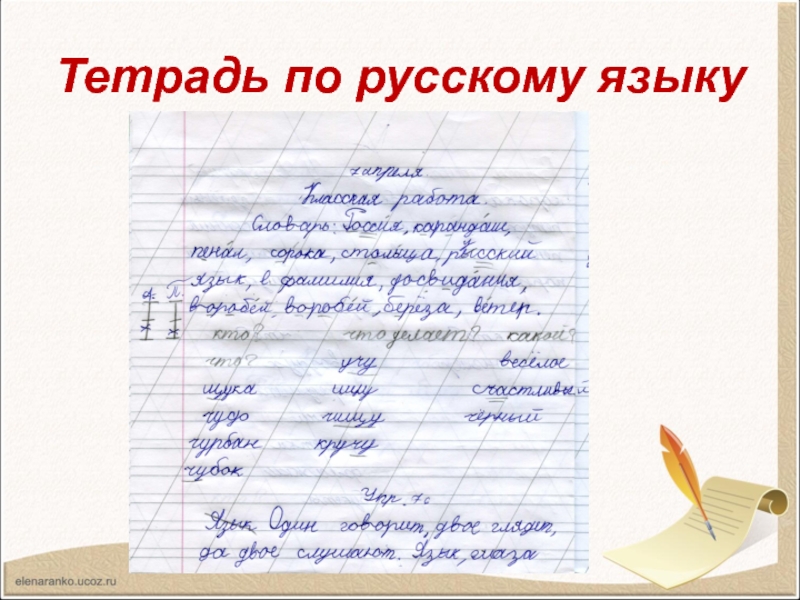 Тетрадь по русскому языку
7 апреля
Классная работа.
Словарь: Россия, карандаш,
пенал, сорока, столица, русский
язык, в фамилия, досвидания,
воробей, воробей, берёза, ветер.
А П
кто? что делает? какой?
что? учу весёлое
щука ищу счастливый
чудо чищу чёрный
чурбан кручу
чубок
Упр.
Язык Один говорит, двое глядит,
да двое слушают. Язык, глаза
elenaranko.ucoz.ru